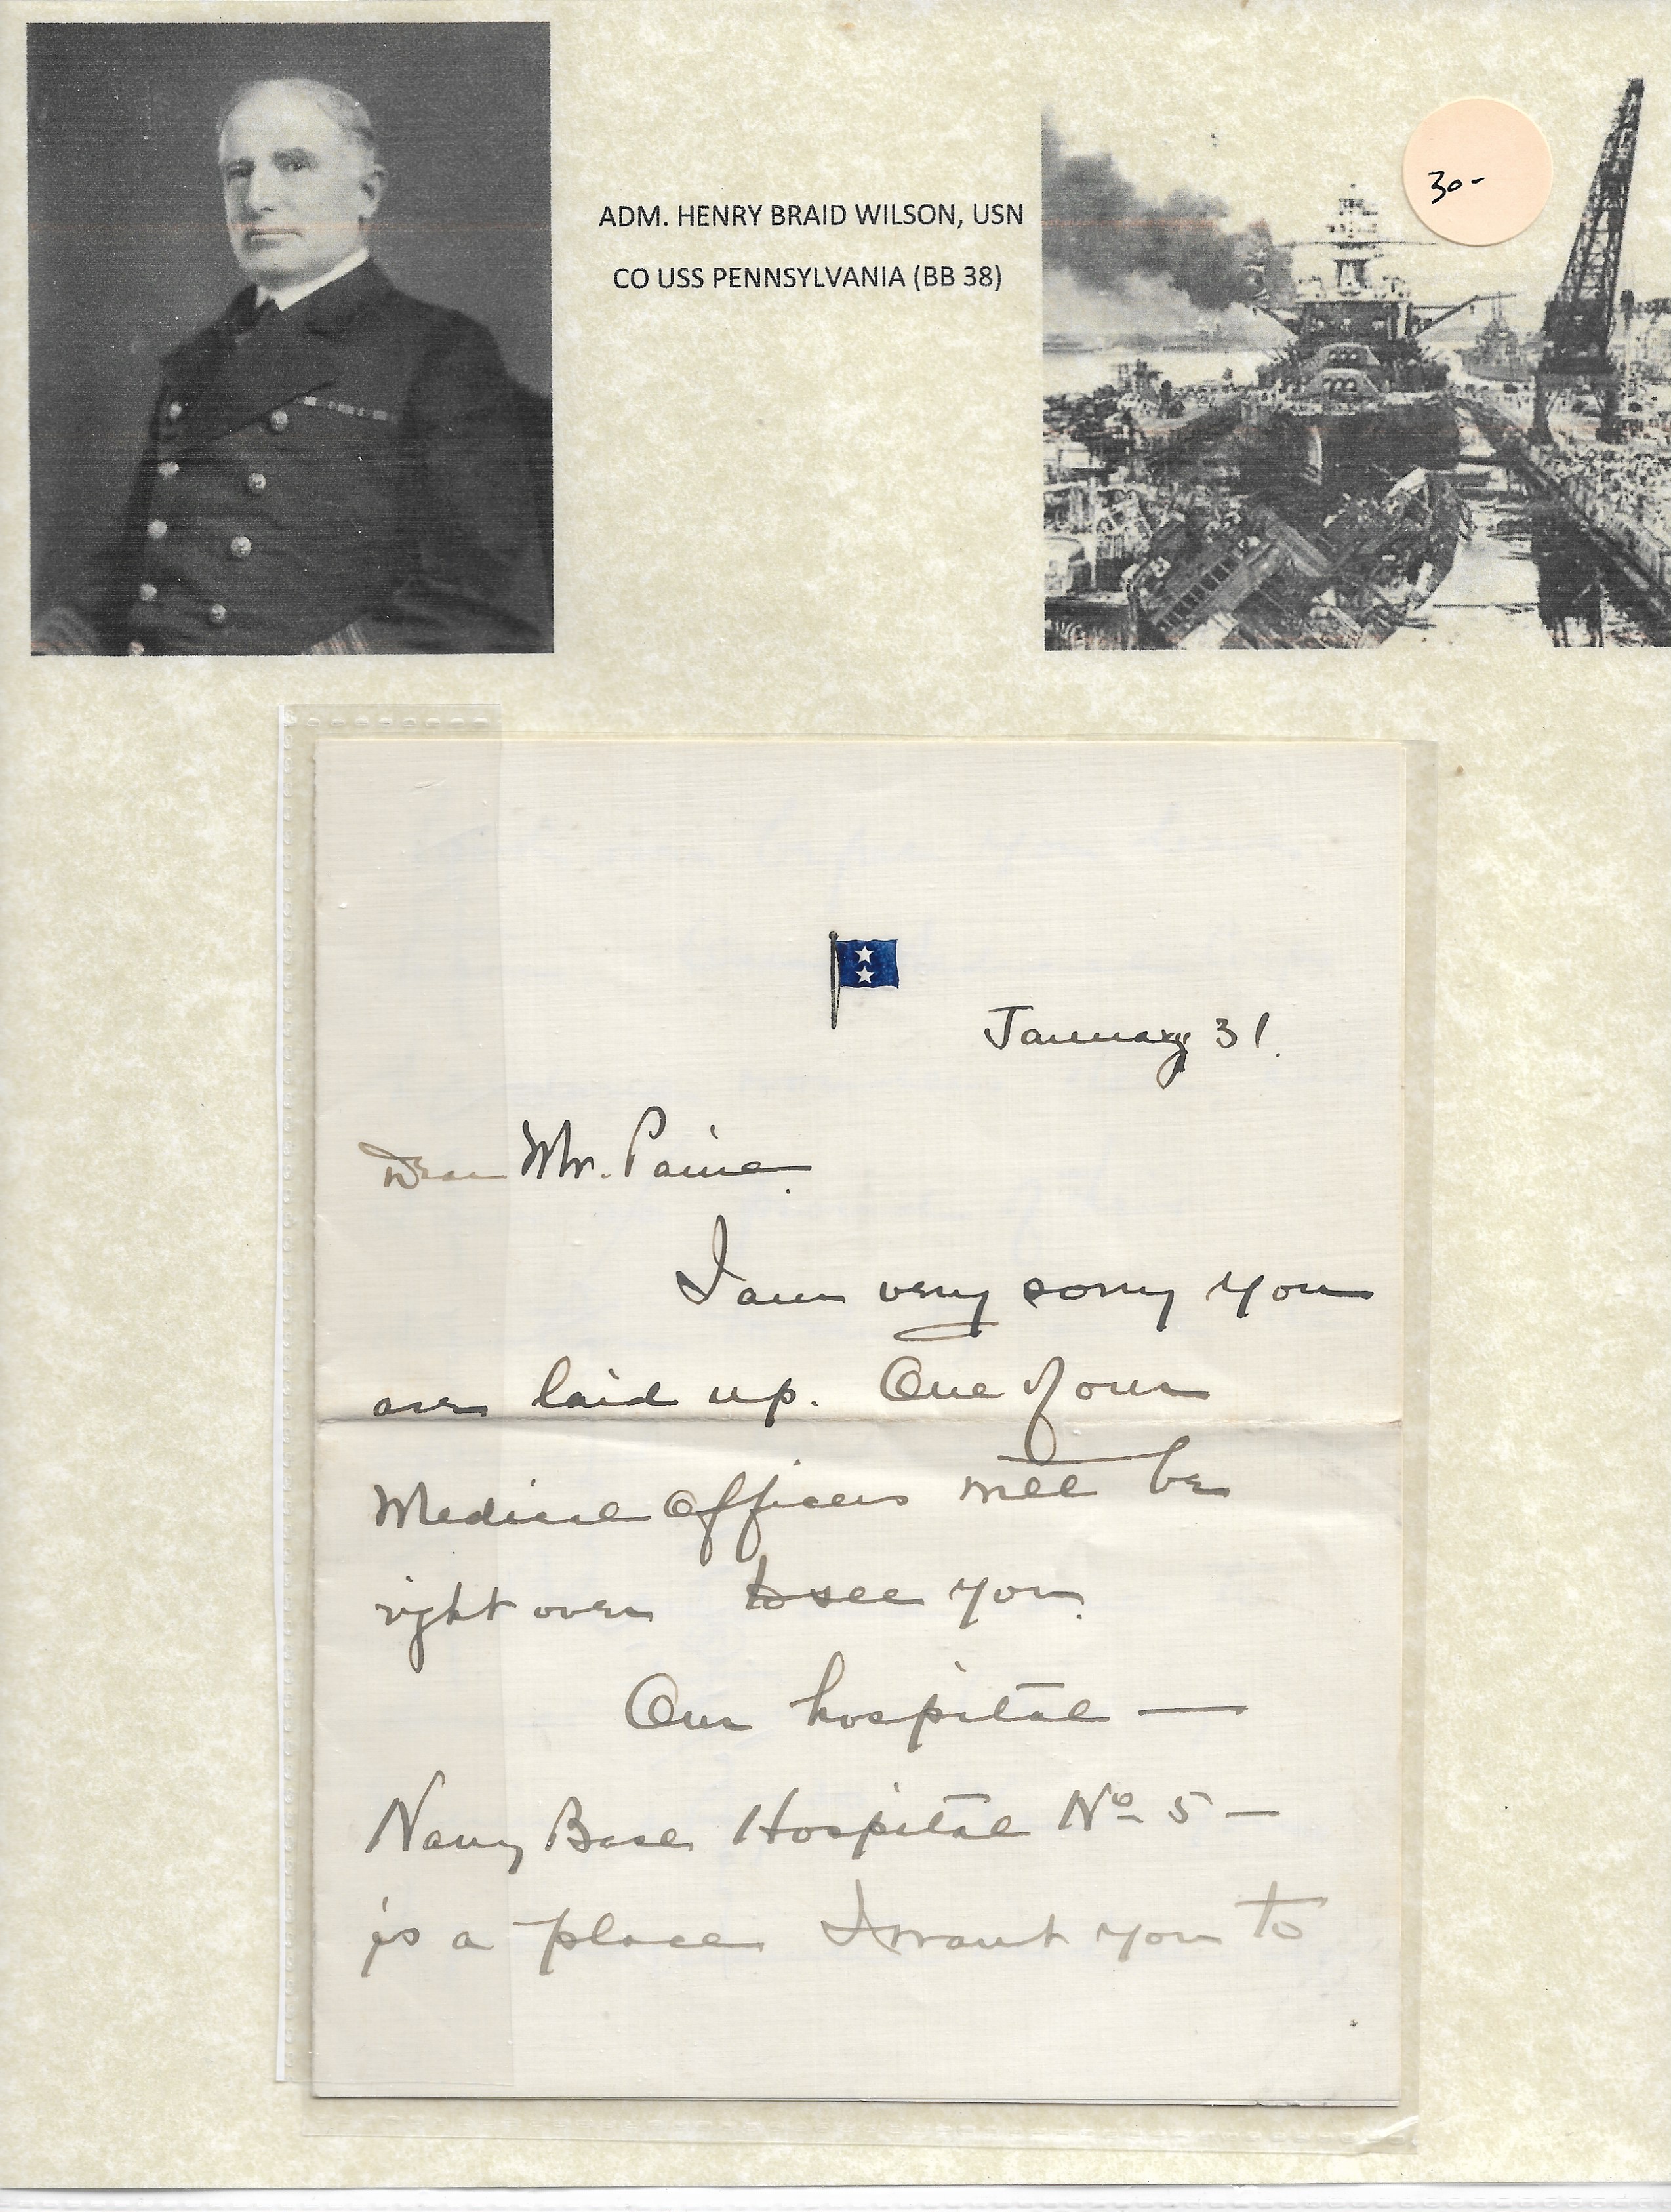 ADM. HENRY BRAID WILSON, USN
CO USS PENNSYLVANIA (BB 38)
30-
January 31.
Dear Mr. Paine.
I am very sorry you
are laid up. One of our
Medical Officers will be
right over to see you.
Our hospital —
Navy Base Hospital No 5 —
is a place I want you to